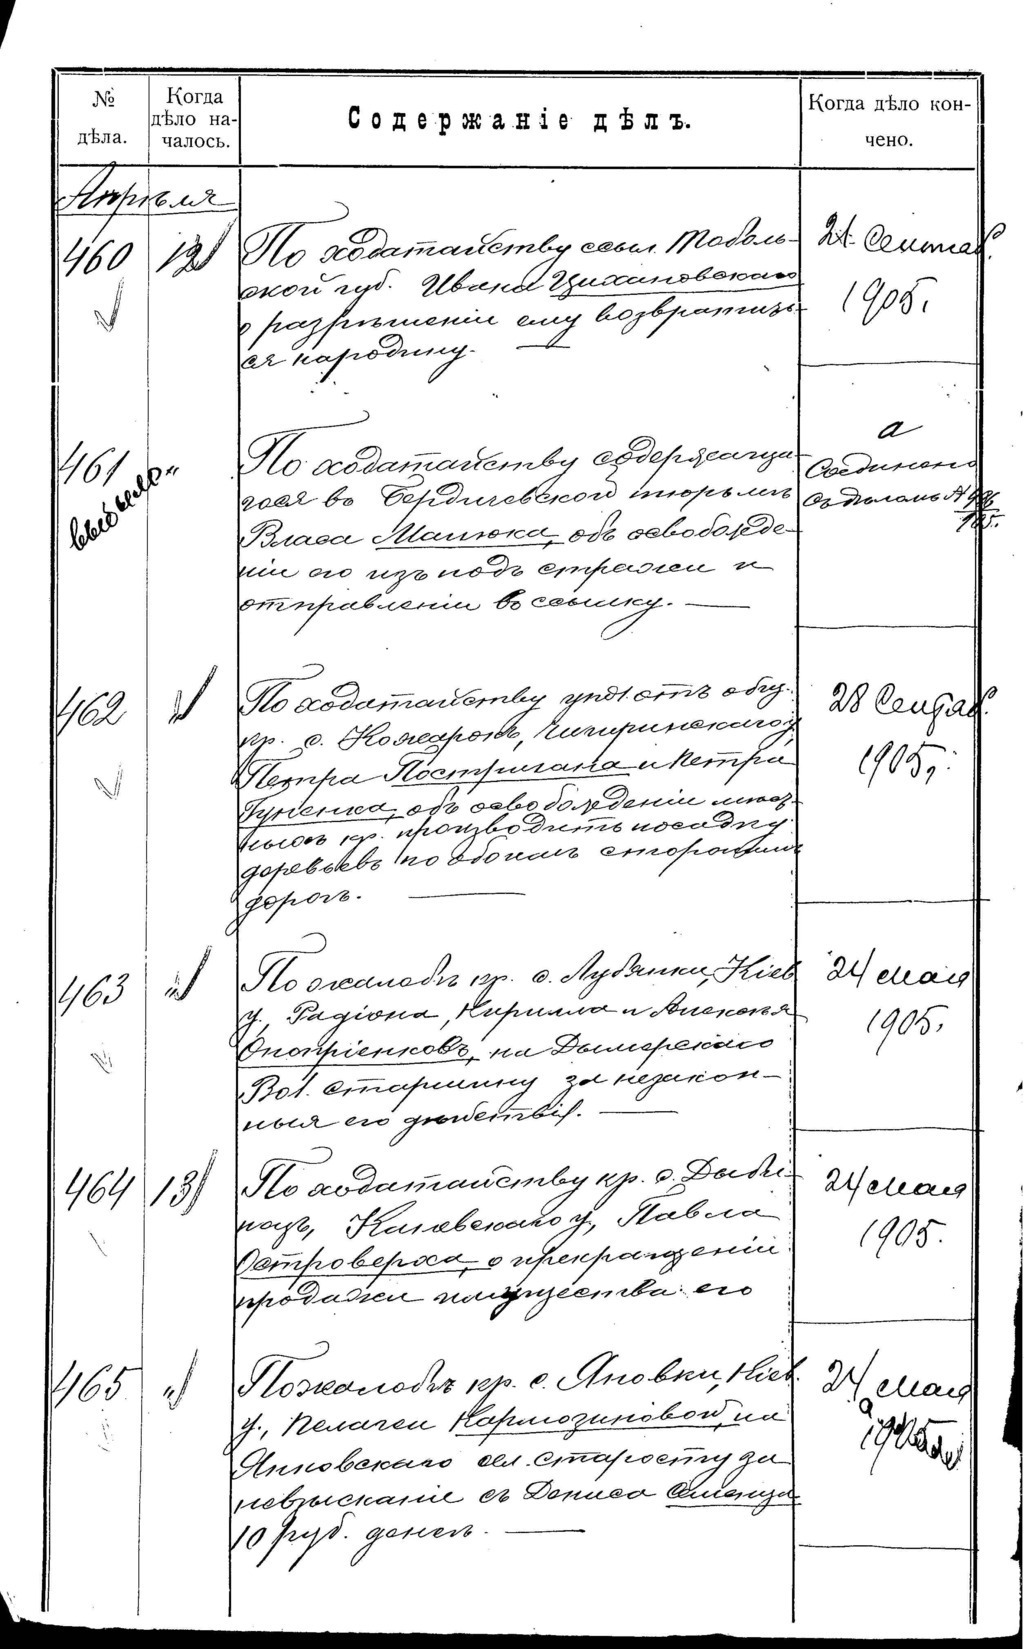 № дѣла.
Когда дѣло началось.
Содержаніе дѣлъ.
Когда дѣло кончено.
Апрѣля
460 12
По ходатайству ссыл. Тоболь-
ской губ. Ивана Цихановскаго
о разрѣшеніи ему возвратить-
ся на родину.
24 Сентяб.
1905.
461 "
выбыло
По ходатайству содержаща-
гося въ Бердичевской тюрьмѣ
Власа Мацюка, объ освобожде-
ніи его изъ подъ стражи и
отправленіи въ ссылку.
Соединено
съ дѣломъ №
462 "
По ходатайству упол. отъ общ.
кр. с. Кожарокъ, Чигиринскаго у,
Петра Постригана и Петра
Гуненка, объ освобожденіи мѣст-
ныхъ кр. производить посадку
деревьевъ по обоимъ сторонамъ
дорогъ.
28 Сентяб.
1905,
463 "
По жалобѣ кр. с. Лубянки, Кіев
у., Радіона, Кирилла и Алексѣя
Оноприенковъ, на Дымерскаго
Вол. старшину за незакон-
ныя его дѣйствія.
24 мая
1905.
464 13
По ходатайству кр. с. Дыби-
нецъ, Каневскаго у, Павла
Островерха, о прекращеніи
продажи имущества его
24 мая
1905.
465 "
По жалобѣ кр. с. Яновки, Кіев.
у., Пелагеи Кармозиновой, на
Янковскаго сел. старосту за
невзысканіе съ Дениса
10 руб. денегъ.
24 мая
1905